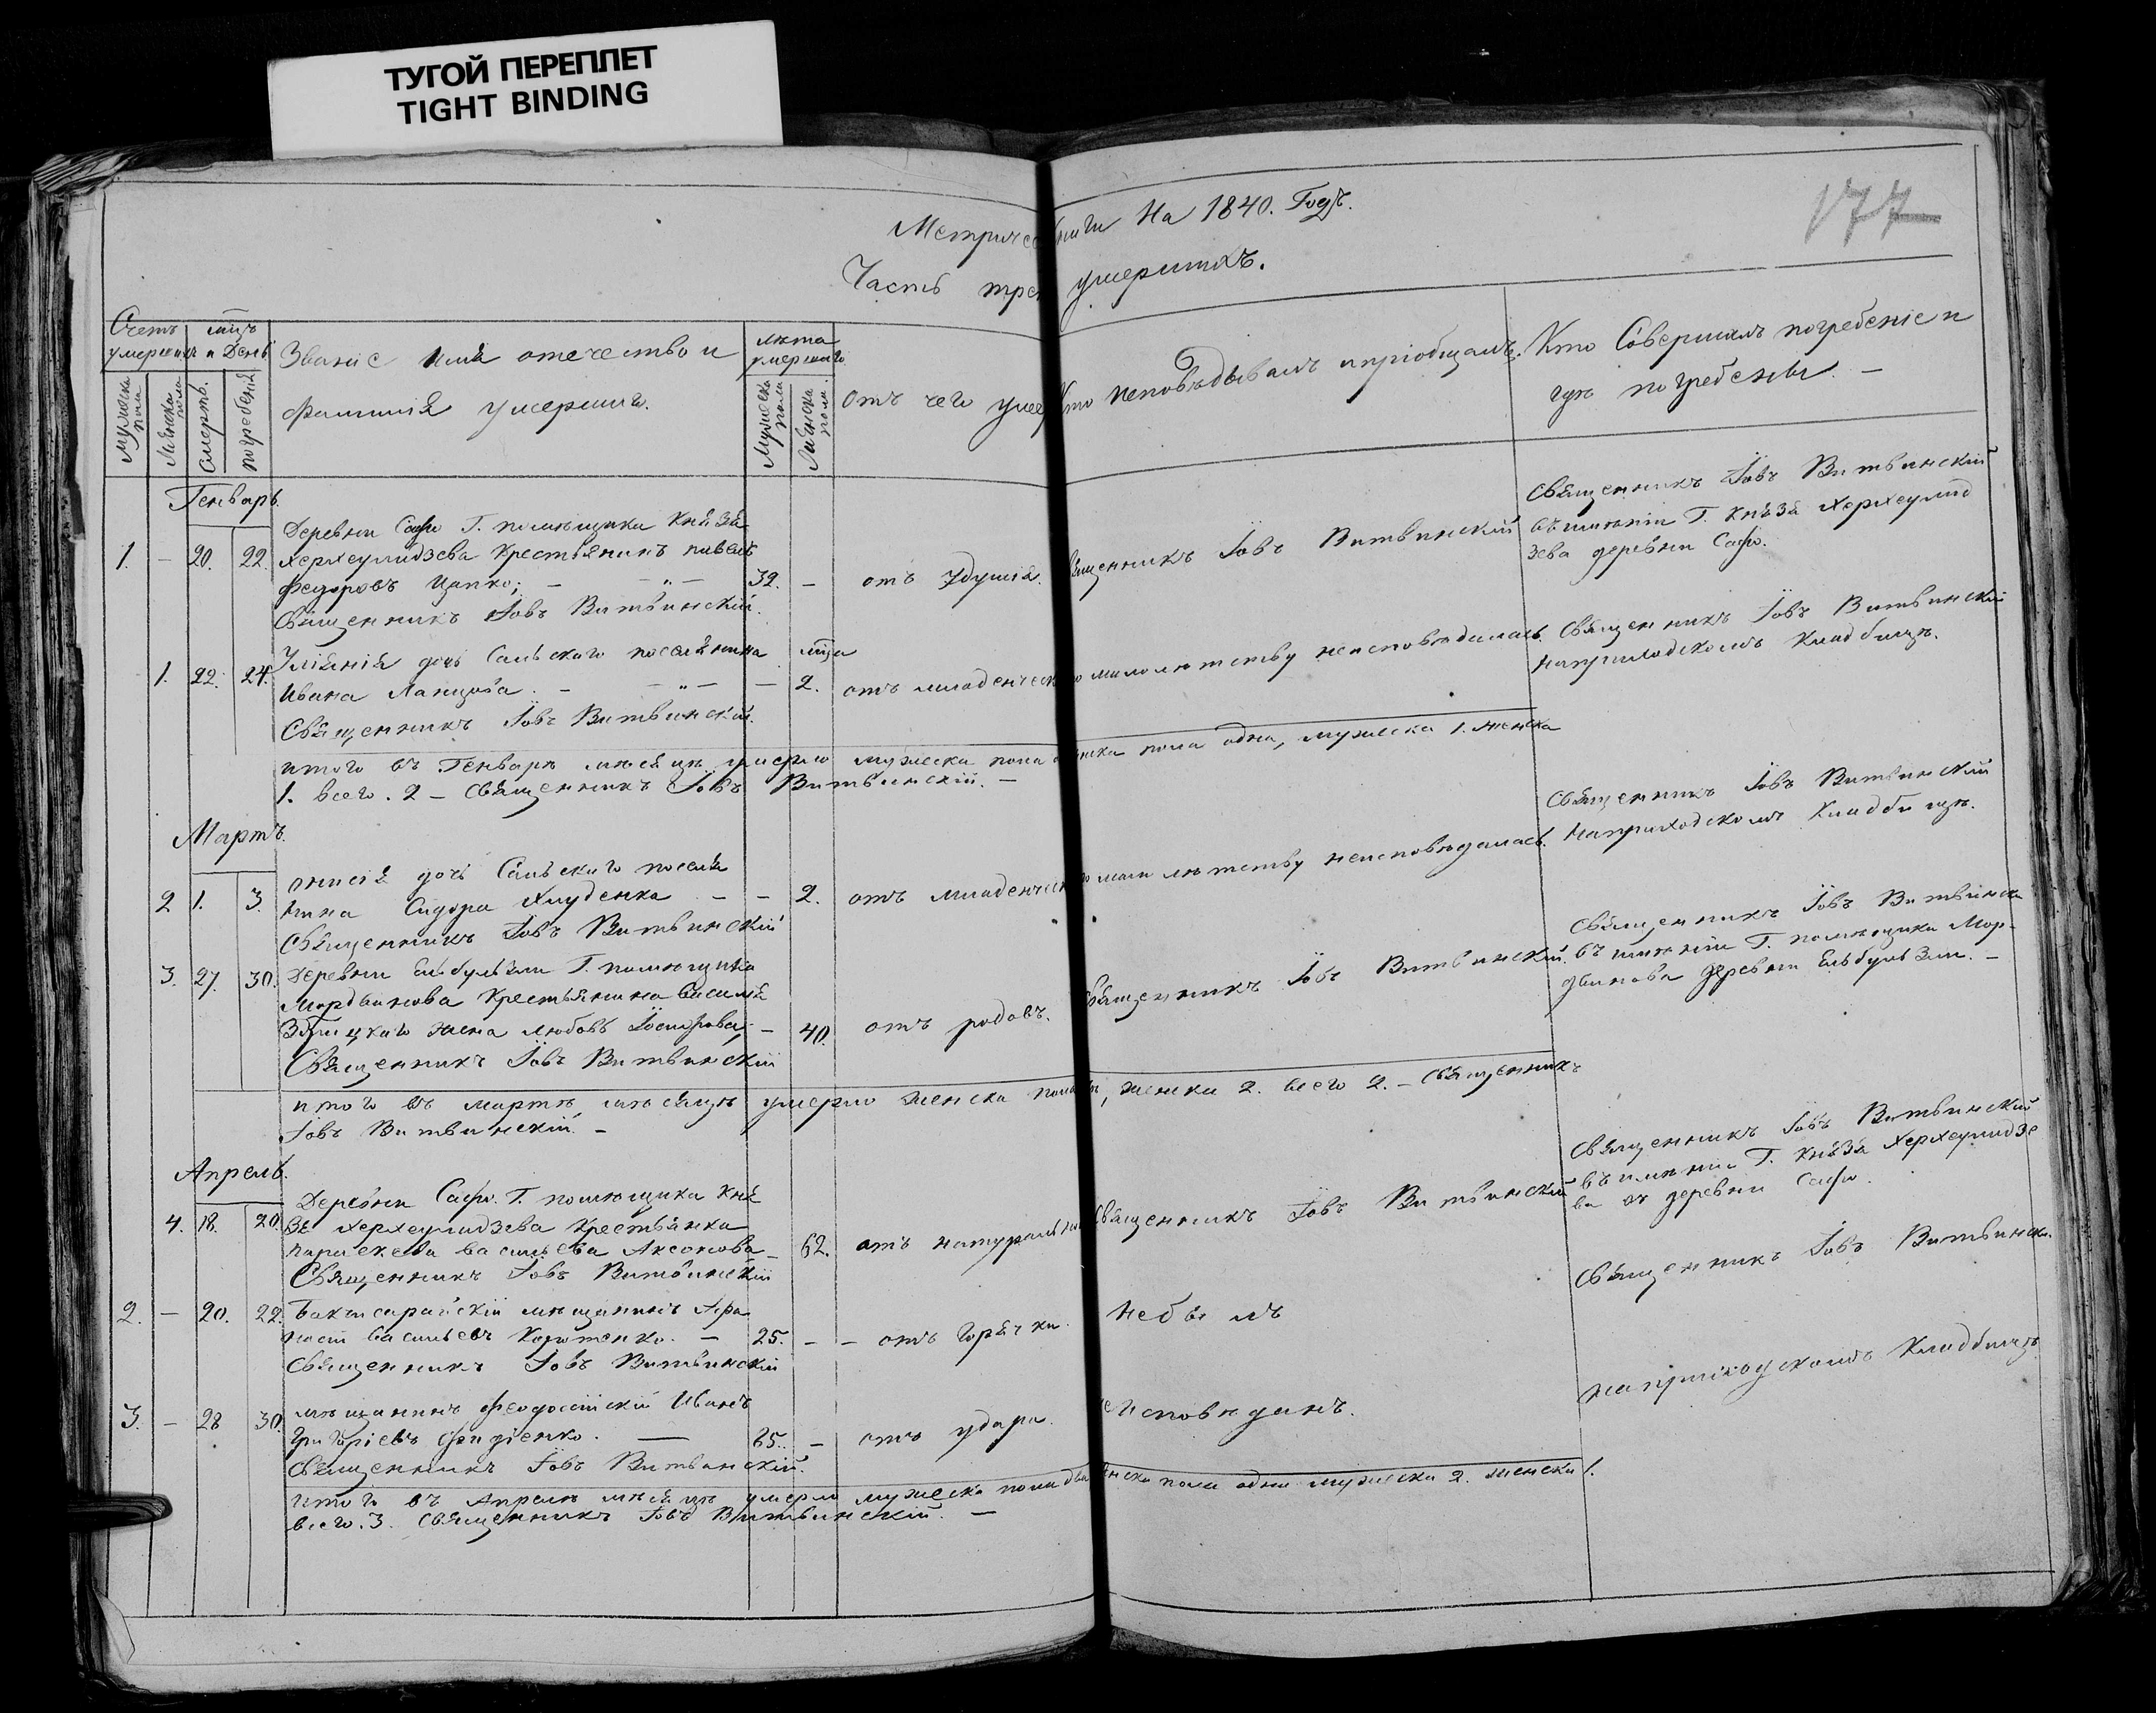 ТУГОЙ ПЕРЕПЛЕТ
TIGHT BINDING
177
Метричес ниги На 1840. Годъ.
Часть трет умершихъ.
Счетъ умершихъ
мц̃ъ и День
Звание имя отечество и
фамилія умершиго.
лѣта умершаго
отъ чего умер
Кто исповѣдывалъ и пріобщалъ.
Кто Совершалъ погребеніе и
гдѣ погребены. –
Мужеска пола
Женска пола
Смерть.
погребенія
Мужеска пола
Женска пола.
Генварь.
1. – 20. 22.
Деревни Г. помѣщика Князя
Херхеулидзева Крестьянинъ
Федоровъ Цапко; – „ –
Священникъ Іовъ Витвинскій.
32. – отъ удушія. ященникъ Іовъ Витвинскій
Священникъ Іовъ Витвинскій
въ имѣніи Г. Князя Херхеулид
зева деревни
1. 22. 24.
Уліянія дочь Сельскаго поселянина
Ивана Ланцова. – „ –
Священникъ Іовъ Витвинскій.
мц̃а
– 2. отъ младенческ о малолѣтству неисповѣдалась.
Священникъ Іовъ Витвинскій
наприходскомъ Кладбищѣ.
итого въ Генварѣ мѣсяцѣ умерло мужеска пола нска пола одна, мужеска 1. женска
1. всего. 2 – Священникъ Іовъ Витвинскій. –
Мартъ.
2 1. 3.
дочь Сельскаго поселя
нина Сидора Худенка – – 2.
Священникъ Іовъ Витвинскій
отъ младенческ о мало лѣтству неисповѣдалась.
Священникъ Іовъ Витвинский
Наприходскомъ Кладбищѣ.
3. 27. 30.
Деревни Г. помѣщика
Мордвинова Крестьянина Василія
жена любовь – 40.
Священникъ Іовъ Витвинскій
отъ родовъ. Священникъ Іовъ Витвинскій.
Священникъ Іовъ Витвинск
въ имѣніи Г. помѣщика Мор-
двинова деревни –
итого въ мартѣ мѣсяцѣ умерло женска пола , женска 2. всего 2. – Священникъ
Іовъ Витвинскій. –
Апрель.
4. 18. 20.
Деревни Г. помѣщика Кня
зя Херхеулидзева Крестьянка
парискева васильева Аксонова – 62.
Священникъ Іовъ Витвинскій
отъ натуральн Священникъ Іовъ Витвинскій
Священникъ Іовъ Витвинский
въ имѣніи Г. Князя Херхеулидзе
ва въ деревни
2. – 20. 22.
Бахчисарайскій мѣщанинъ Афа
насій Васильевъ – 25. – – отъ горячки. небылъ
Священникъ Іовъ Витвинскій
Священникъ Іовъ Витвинск.
3. – 28 30.
мѣщанинъ Феодосійскій Иванъ
Григоріевъ – 65. – отъ удара. исповѣданъ.
Священникъ Іовъ Витвинскій.
наприходскомъ Кладбищѣ
итого въ Апрелѣ мѣсяцѣ умерло мужеска пола два нска пола одна мужеска 2. женска 1.
всего. 3. Священникъ Іовъ Витвинскій. –